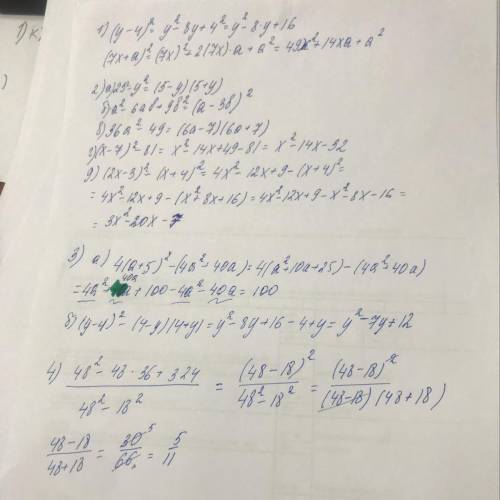 1) (y-4)² = y²-8y+4² = y²-8y+16
(7x+a)² = (7x)²+2(7x)·a+a² = 49x²+14xa+a²
2) а) 25-y² = (5-y)(5+y)
б) a²-6ab+9b² = (a-3b)²
в) 36a²-49 = (6a-7)(6a+7)
г) (x-7)²-81 = x²-14x+49-81 = x²-14x-32
д) (2x-3)²-(x+4)² = 4x²-12x+9-(x+4)² =
= 4x²-12x+9-(x²+8x+16) = 4x²-12x+9-x²-8x-16 =
= 3x²-20x-7
3) а) 4(a+5)²-(4a²+40a) = 4(a²+10a+25)-(4a²+40a)
= 4a²+40a+100-4a²-40a = 100
б) (y-4)²-(4-y)(4+y) = y²-8y+16-4+y = y²-7y+12
4) (48²-48·36+324)/(48²-18²) = (48-18)²/(48²-18²) = (48-18)²/((48-18)(48+18))
(48-18)/(48+18) = 30/66 = 5/11